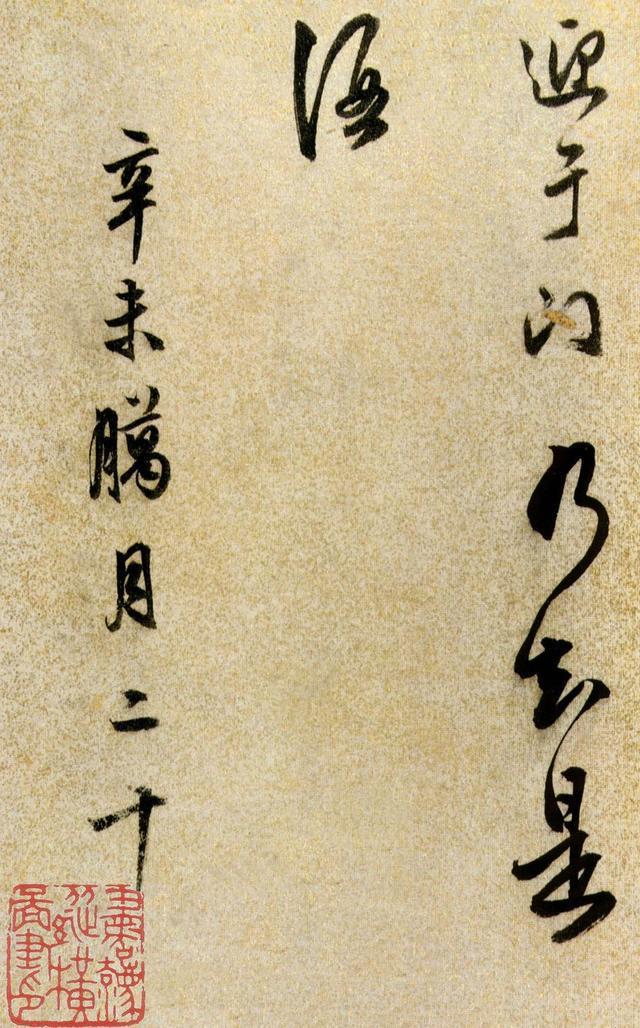 迎于门乃知是
语
辛未臈月二十